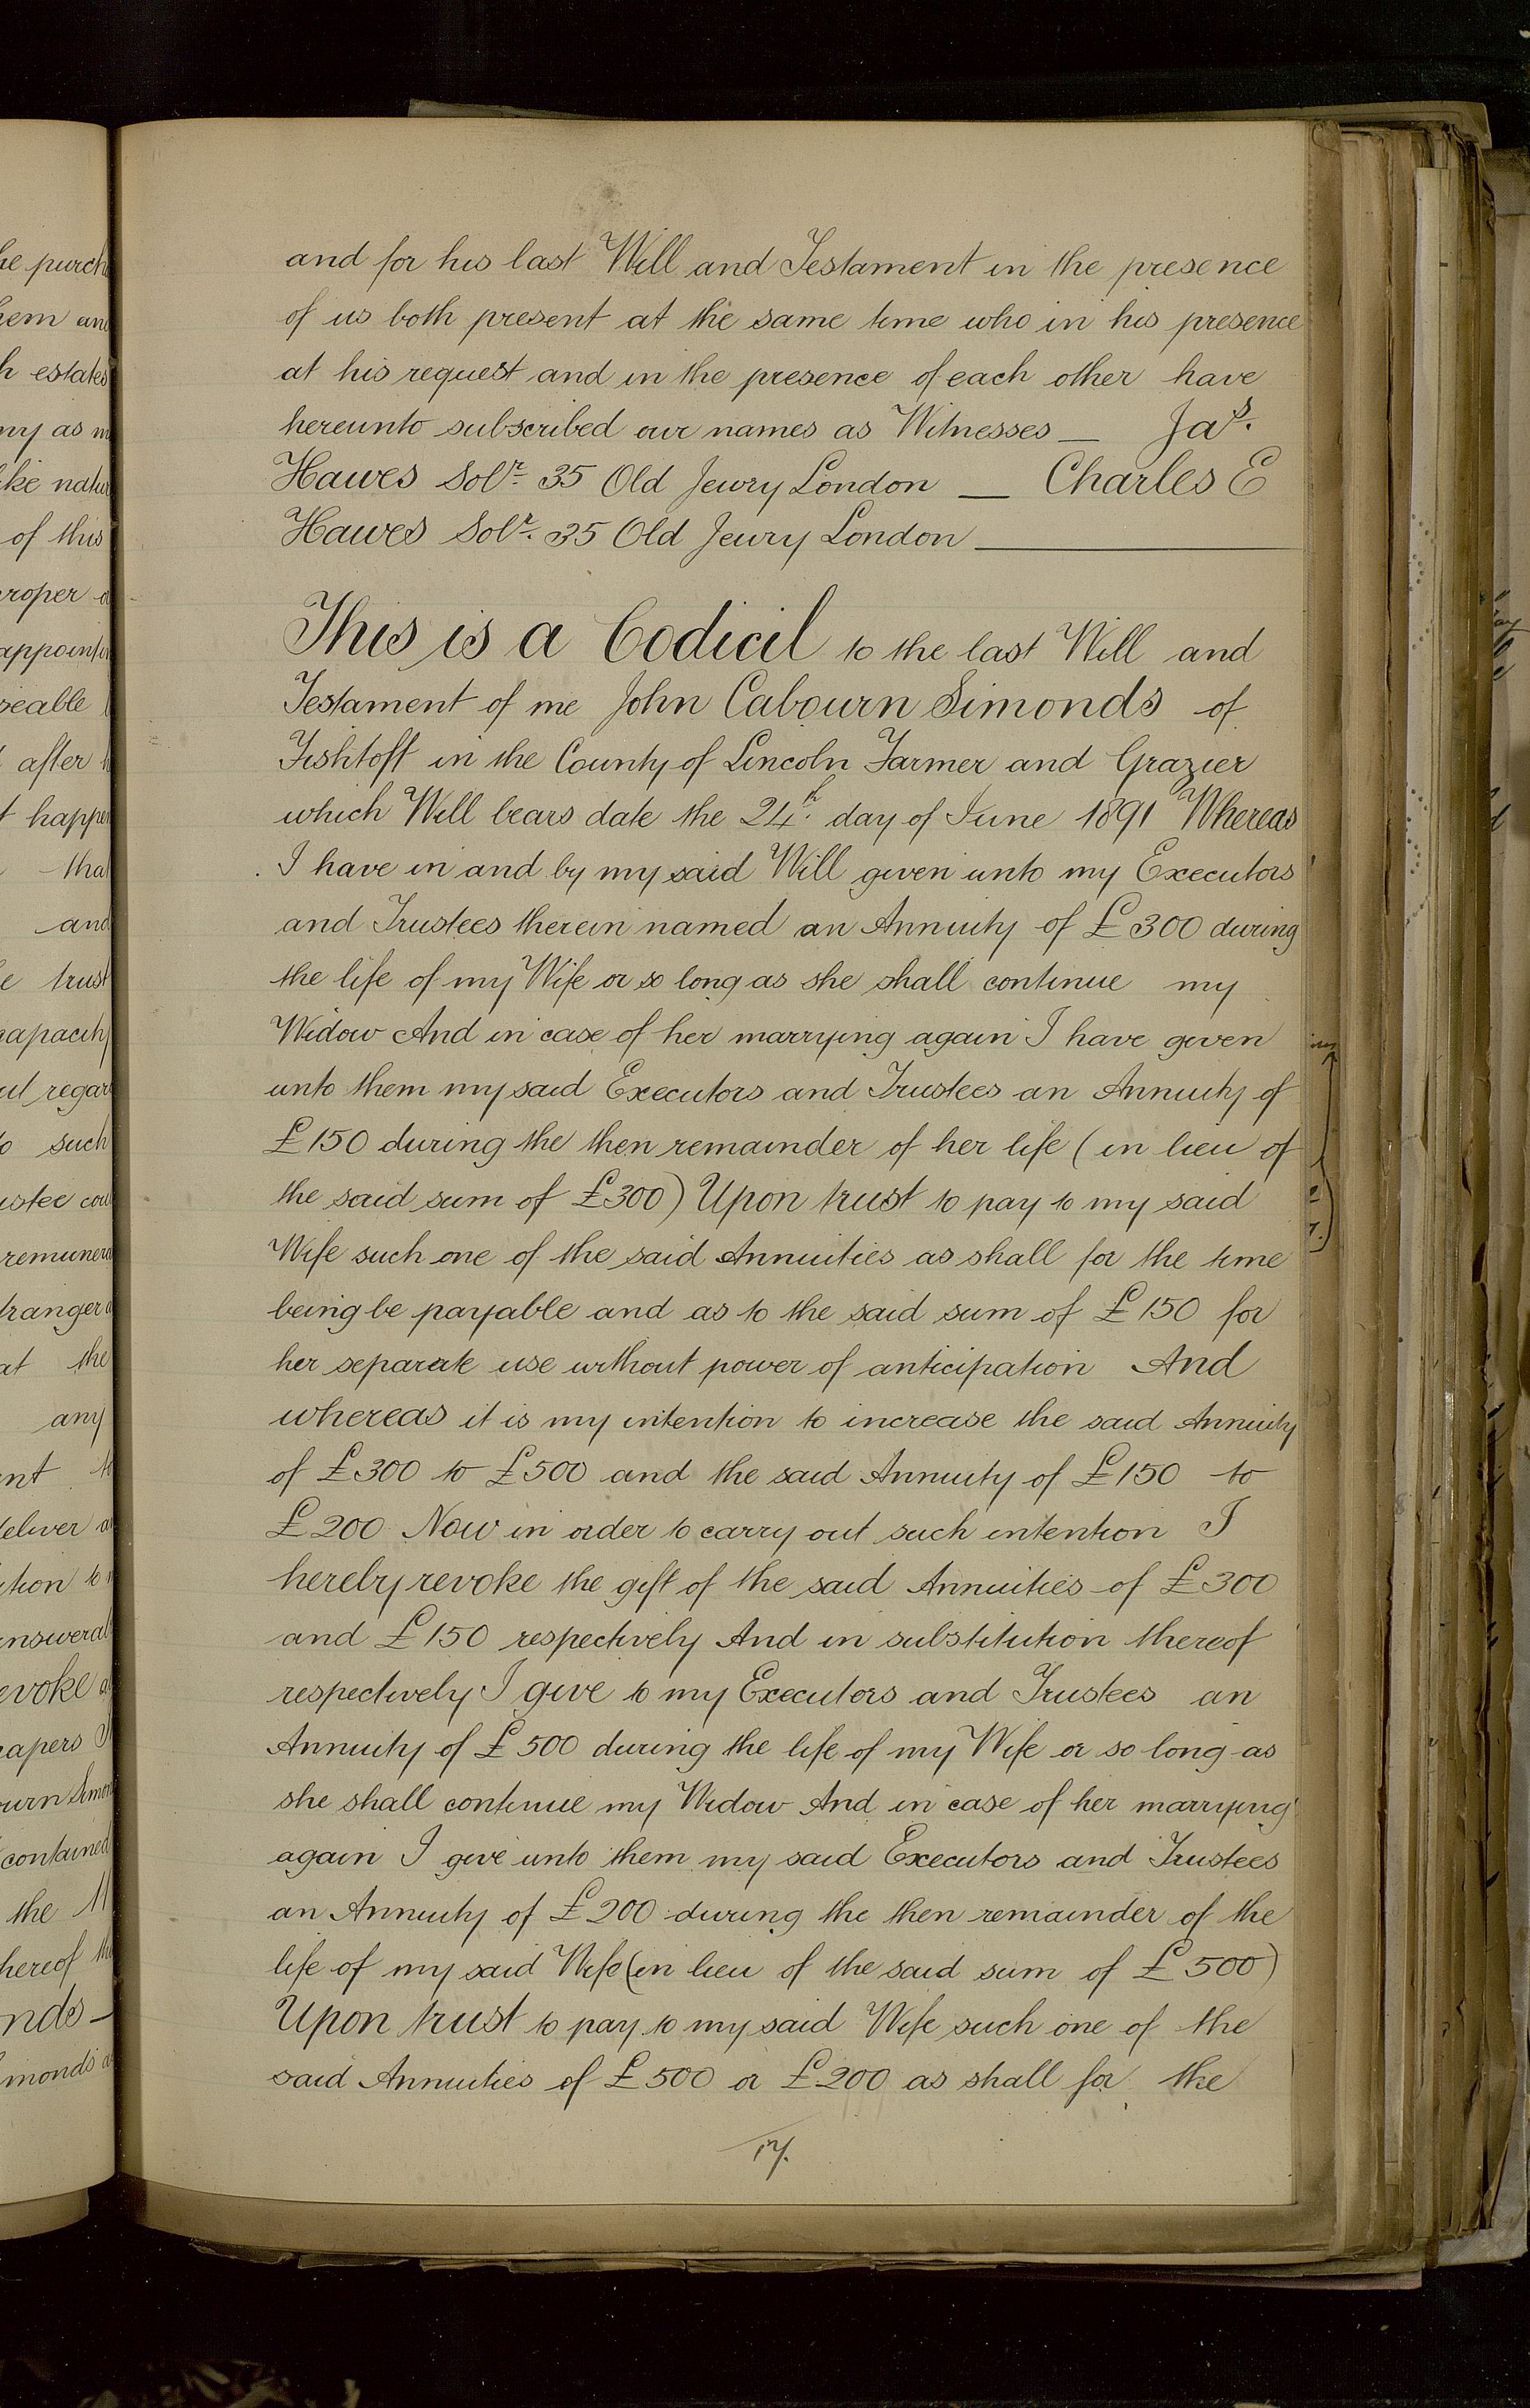 and for his last Will and Testament in the presence
of us both present at the same time who in his presence
at his request and in the presence of each other have
hereunto subscribed our names as Witnesses — Jas.
Hawes Solr. 35 Old Jewry London — Charles E
Hawes Solr. 35 Old Jewry London
This is a Codicil to the last Will and
Testament of me John Cabourn Simonds of
Fishtoft in the County of Lincoln Farmer and Grazier
which Will bears date the 24th. day of June 1891 Whereas
I have in and by my said Will given unto my Executors
and Trustees therein named an Annuity of £300 during
the life of my Wife or so long as she shall continue my
Widow And in case of her marrying again I have given
unto them my said Executors and Trustees an Annuity of
£150 during the then remainder of her life (in lieu of
the said sum of £300) Upon trust to pay to my said
Wife such one of the said Annuities as shall for the time
being be payable and as to the said sum of £150 for
her separate use without power of anticipation And
whereas it is my intention to increase the said Annuity
of £300 to £500 and the said Annuity of £150 to
£200 Now in order to carry out such intention I
hereby revoke the gift of the said Annuities of £300
and £150 respectively And in substitution thereof
respectively I give to my Executors and Trustees an
Annuity of £500 during the life of my Wife or so long as
she shall continue my Widow And in case of her marrying
again I give unto them my said Executors and Trustees
an Annuity of £200 during the then remainder of the
life of my said Wife (in lieu of the said sum of £500)
Upon trust to pay to my said Wife such one of the
said Annuities of £500 or £200 as shall for the
17.